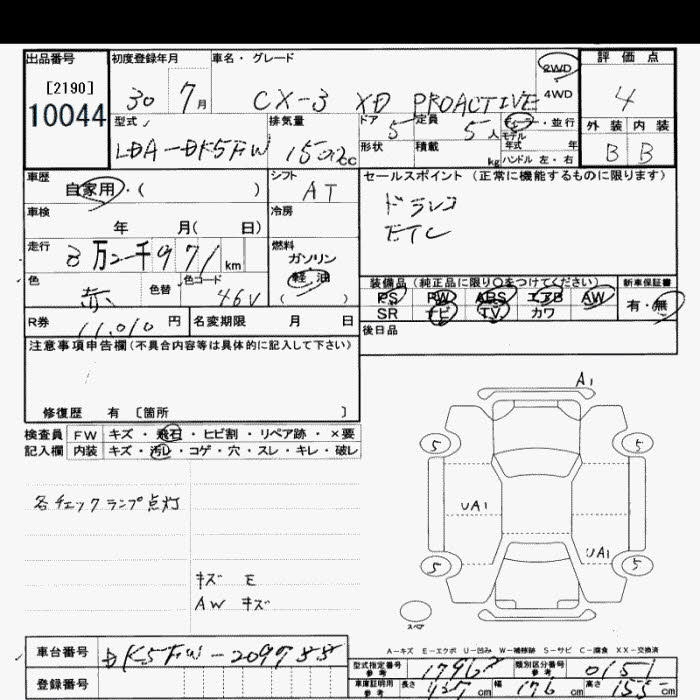 出品番号 初度登録年月 車名・グレード 2WD 評価点
[2190] 4WD
10044 30 7月 CX-3 XD PROACTIVE 4
型式 排気量 ドア 5 定員 5人 ディーラー・並行 外装 内装
LDA-DK5FW 1500cc 形状 積載 kg モデル年式 年 B B
ハンドル 左・右
車歴 自家用・( ) シフト AT セールスポイント(正常に機能するものに限ります)
車検 年 月( 日) 冷房 ドラレコ
ETC
走行 8万二千971km 燃料 ガソリン
軽油
( )
色 赤 色替 色コード 46V 装備品(純正品に限り○をつけてください) 新車保証書
PS PW ABS エアB AW 有・無
SR ナビ TV カワ
R券 11,010円 名変期限 月 日 後日品
注意事項申告欄(不具合内容等は具体的に記入して下さい)
修復歴 有 〔箇所 〕
A1
検査員 FW キズ・飛石・ヒビ割・リペア跡・×要
記入欄 内装 キズ・汚レ・コゲ・穴・スレ・キレ・破レ
5 5
各チェックランプ点灯 UA1
UA1
5 5
キズ E
AW キズ
スペア
A-キズ E-エクボ U-凹み W-補修跡 S-サビ C-腐食 XX-交換済
車台番号 DK5FW-209788
型式指定番号 参考 類別区分番号 参考 0151
登録番号 車庫証明用 参考 長さ cm 幅 176cm 高さ 155cm